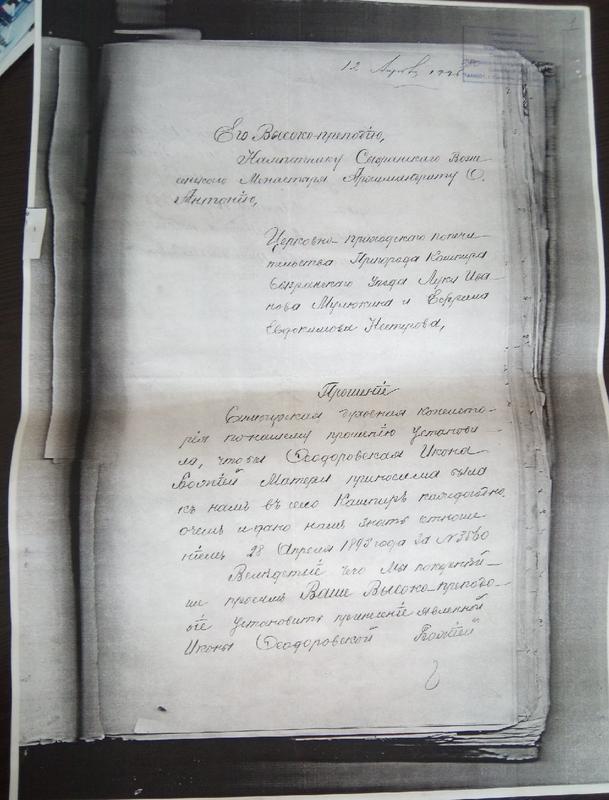 12 Апреля
Его Высоко-преподобію,
Намѣстнику Сызранскаго Возне
сенскаго Монастыря Архимандриту О.
Антонію,
Церковно-приходскаго попечи
тельства Пригорода Кашпира
Сызранскаго Уѣзда Луки Ива
нова Мулюкина и Ефрема
Евдокимова Нестерова,
Прошеніе
Симбирская духовная консисто
рія по нашему прошенію установи
ла, чтобы Феодоровская Икона
Божіей Матери приносима была
къ намъ въ село Кашпиръ каждогодно,
о чемъ и дано намъ знать отноше
ніемъ 28 Апреля 1893 года за №
Вслѣдствіе чего мы покорнѣй
ше просимъ Ваше Высоко-препо
біе установить принесеніе явленной
Иконы Феодоровской Божіей